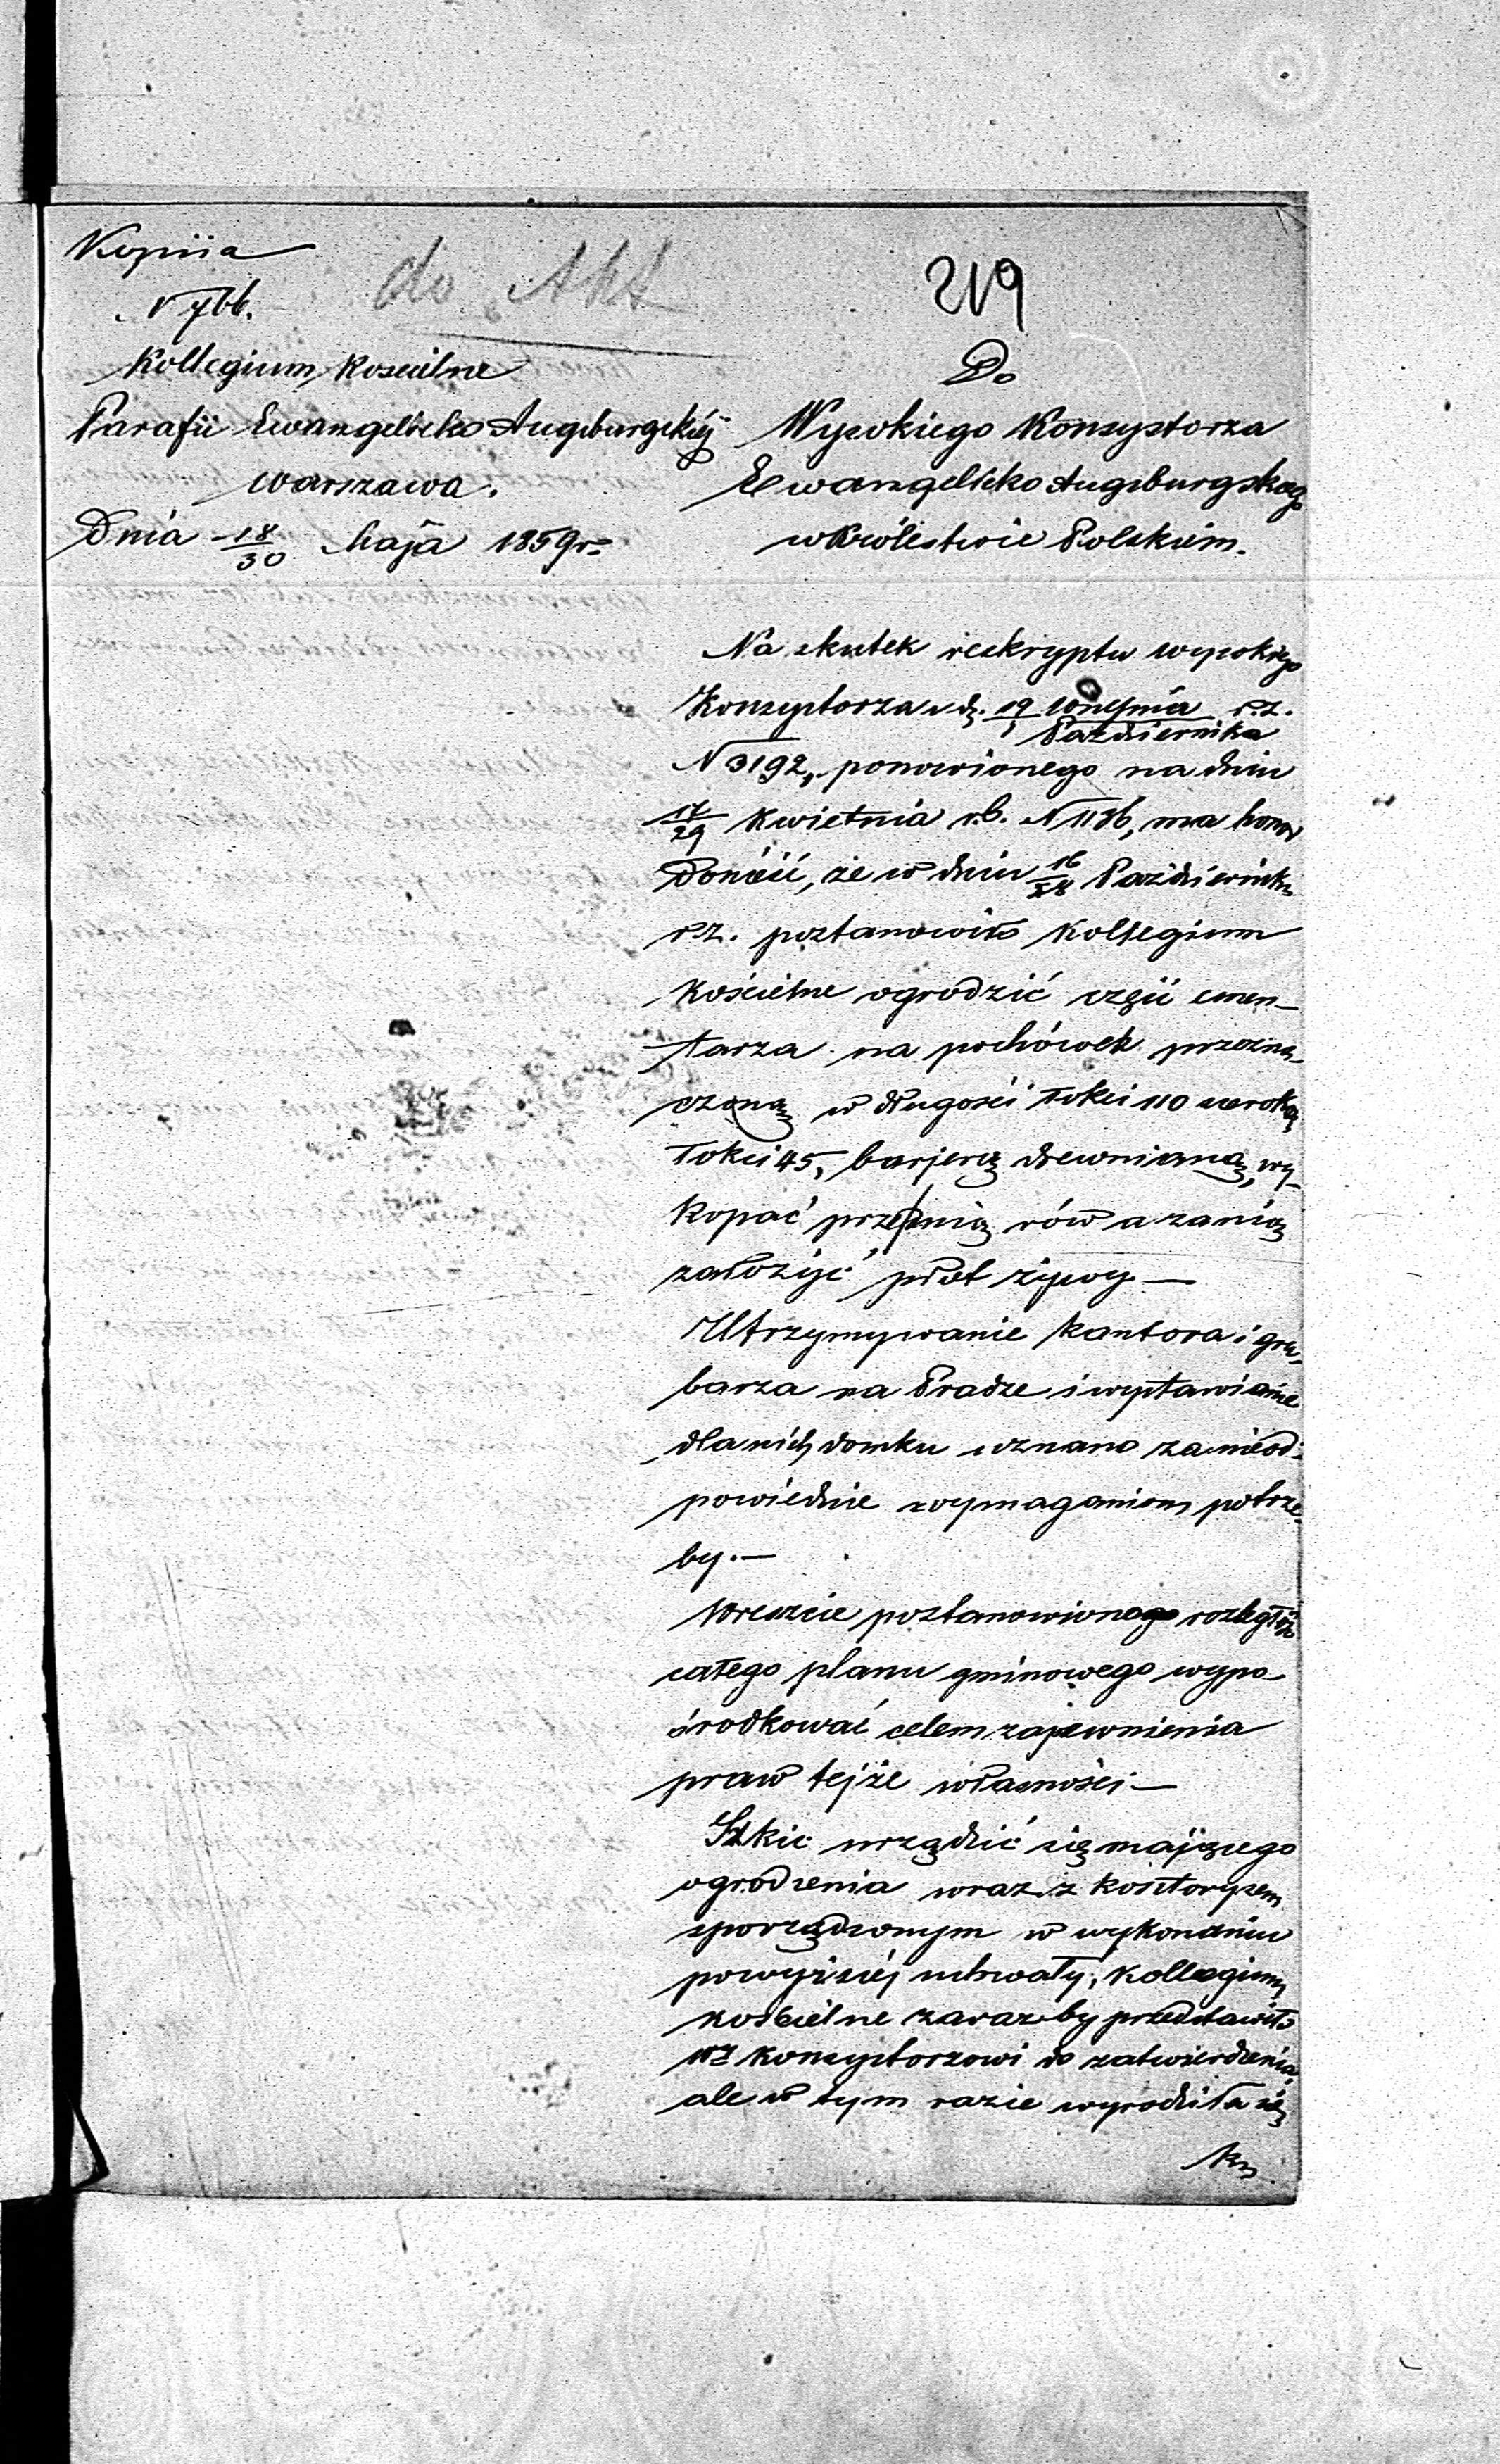 Kopiia
do Akt
219
N 766.
Kollegium Kościelne
Parafii Ewangelicko Augsburgskiéj
Warszawa.
Dnia 18/30 Maja 1859 r.
Do
Wysokiego Konsystorza
Ewangelicko Augsburgskiego
w Królestwie Polskim.
Na skutek reskryptu wysokiego
Konsystorza z d. 19 Września / 1 Października r.z.
N 3192, ponowionego na dniu
17/29 Kwietnia r.b. N 1136, ma honor
Donieść, że w dniu 16/28 Października
r.z. postanowiło Kollegium
Kościelne ogrodzić część cmen-
tarza na pochówek przezna-
czoną w długości łokci 110 szeroką
łokci 45, barjerą drewnianą, wy-
kopać przed nią rów a za nią
założyć płot żywy —
Utrzymywanie kantora i gra-
barza na Pradze i wystawianie
dla nich domku uznano za nieod-
powiednie wymaganiom potrze-
by. —
Wreszcie postanowiono rozległość
całego planu gminowego wypo-
środkować celem zapewnienia
praw tejże własności —
Szkic urządzić się mającego
ogrodzenia wraz z kosztorysem
sporządzonym w wykonaniu
powyższéj uchwały, Kollegium
kościelne zaraz by przedstawiło
Konsystorzowi do zatwierdzenia,
ale w tym razie wyrodziła się